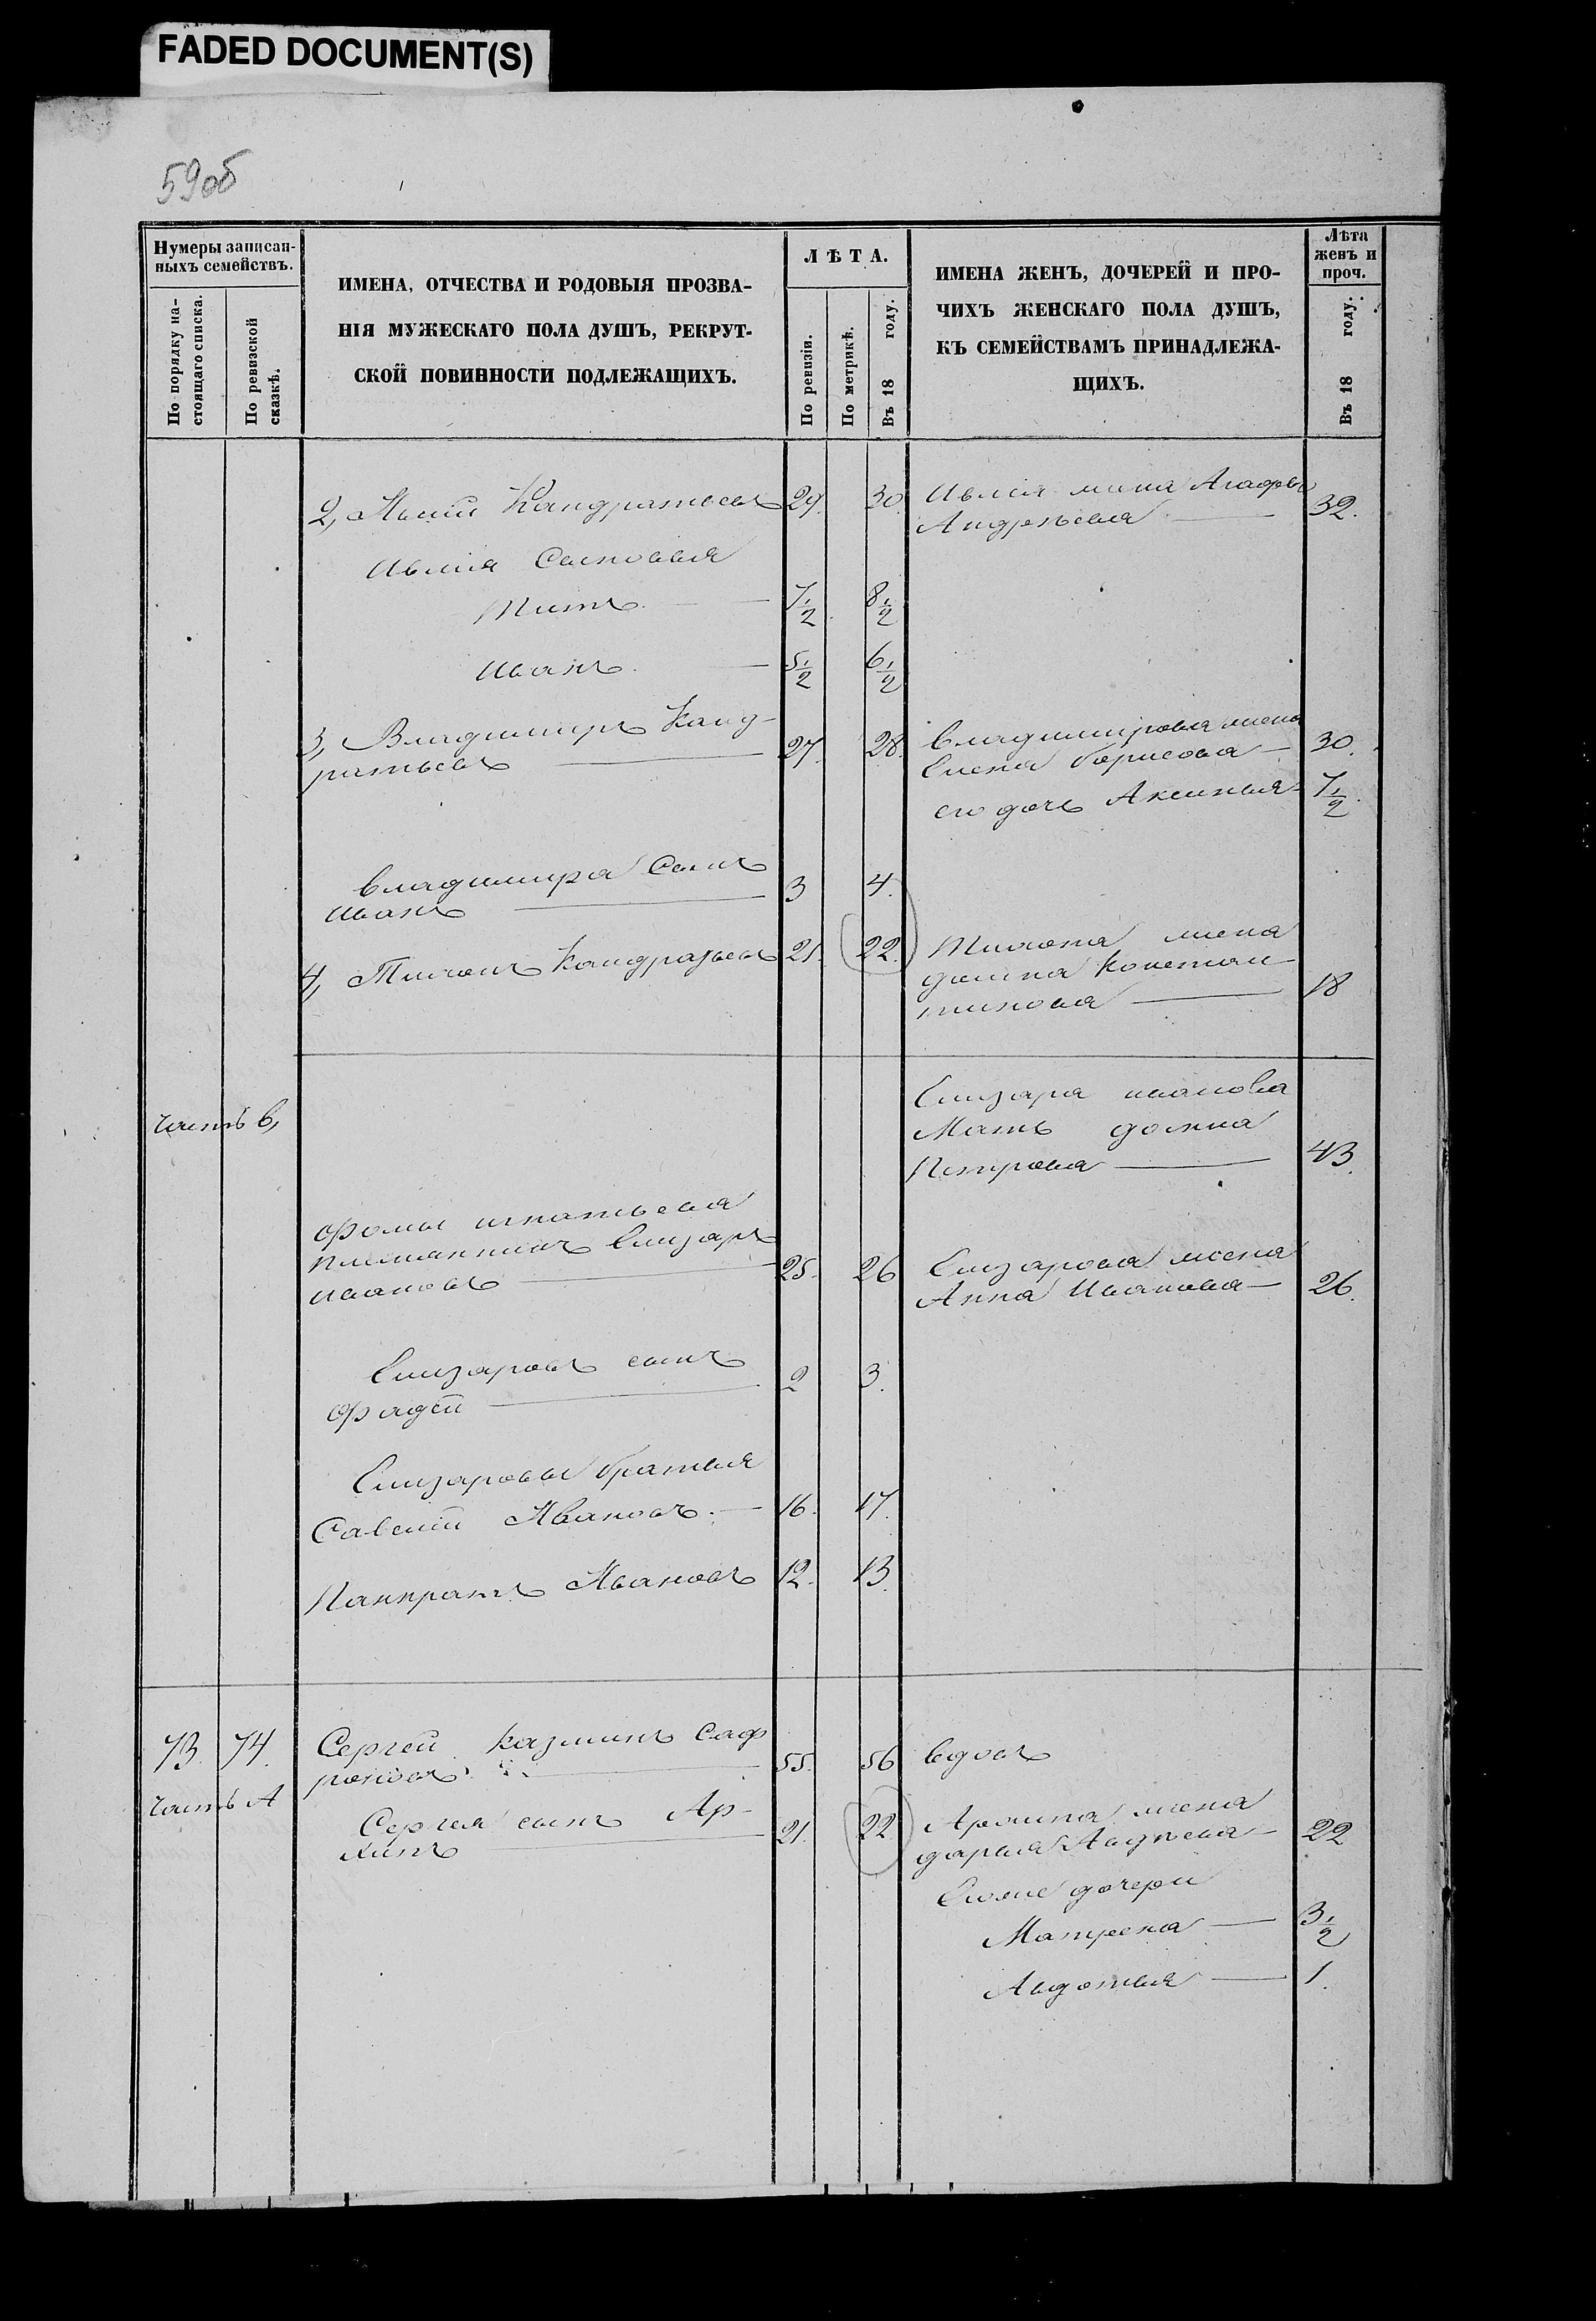 FADED DOCUMENT(S)
59об
Нумеры записан-
ныхъ семействъ.
По порядку на-
стоящаго списка.
По ревизской
сказкѣ.
ИМЕНА, ОТЧЕСТВА И РОДОВЫЯ ПРОЗВА-
НІЯ МУЖЕСКАГО ПОЛА ДУШЪ, РЕКРУТ-
СКОЙ ПОВИННОСТИ ПОДЛЕЖАЩИХЪ.
ЛѢТА.
По ревизіи.
По метрикѣ.
Въ 18 году.
ИМЕНА ЖЕНЪ, ДОЧЕРЕЙ И ПРО-
ЧИХЪ ЖЕНСКАГО ПОЛА ДУШЪ,
КЪ СЕМЕЙСТВАМЪ ПРИНАДЛЕЖА-
ЩИХЪ.
Лѣта
женъ и
проч.
Въ 18 году.
2, Кандратьевъ 29. 30.
жена Агафья
Андрѣева 32.
Сыновья
Титъ 7 1/2 8 1/2
Иванъ 5 1/2 6 1/2
3, Владимиръ Канд-
ратьевъ 27. 28.
Владимирова жена
Елена Борисова 30.
его дочь Аксинья 7 1/2.
Владимира Сынъ
Иванъ 3 4.
4, Тихонъ Кандратьевъ 21. 22.
Тихона жена
Констан-
тинова 18
Часть в,
Елизара Иванова
Мать
Петрова 43.
Фомы игнатьева
племянникъ Елизаръ
Ивановъ 25. 26
Елизарова жена
Анна Иванова 26.
Елизаровъ сынъ
Фадей 2 3.
Елизаровы братья
Савелий Ивановъ 16. 17.
Панкратъ Ивановъ 12. 13.
73. 74.
Сергей Казминъ Саф
роновъ 55. 56
вдовъ
Часть А
Сергея сынъ Ар-
хипъ 21. 22
Архипа жена
дарья Авдѣева 22
дочери
Матрена 3 1/2
Авдотья 1.